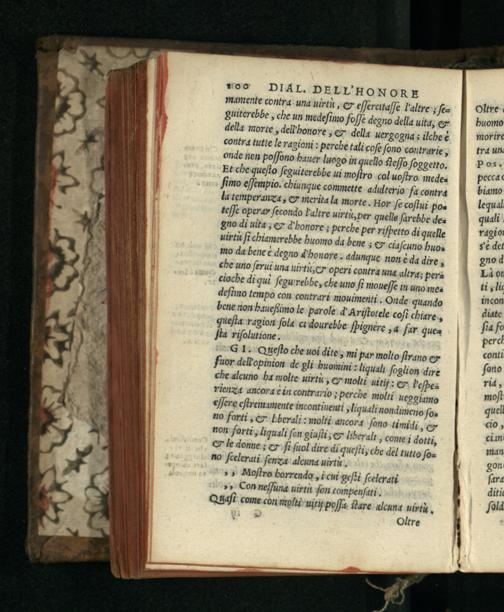 200 DIAL. DELL'HONORE
mamente contra una uirtù, & essercitasse l'altre; se-
guiterebbe, che un medesimo fosse degno della uita, &
della morte, dell'honore, & della uergogna; ilche è
contra tutte le ragioni: perche tali cose sono contrarie,
onde non possono hauer luogo in quello stesso soggetto.
Et che questo seguiterebbe ui mostro col uostro mede-
simo essempio. chiunque commette adulterio fa contra
la temperanza, & merita la morte. Hor se costui po-
tesse operar secondo l'altre uirtù, per quelle sarebbe de-
gno di uita, & d'honore; perche per rispetto di quelle
uirtù si chiamerebbe huomo da bene; & ciascuno huo-
mo da bene è degno d'honore. adunque non è da dire,
che uno serui una uirtù, & operi contra una altra; però
cioche di quì seguirebbe, che uno si mouesse in uno me-
desimo tempo con contrari mouimenti. Onde quando
bene non hauessimo le parole d'Aristotele così chiare,
questa ragion sola ci dourebbe spignere, a far que-
sta risolutione.
GI. Questo che uoi dite, mi par molto strano &
fuor dell'opinion de gli huomini: liquali soglion dire
che alcuno ha molte uirtù, & molti uitij: & l'espe-
rienza ancora è in contrario; perche molti ueggiamo
essere estremamente incontinenti, liquali nondimeno so-
no forti, & liberali: molti ancora sono timidi, &
non forti, liquali son giusti, & liberali, come i dotti,
& le donne; & si suol dire di questi, che del tutto so-
no scelerati senza alcuna uirtù.
,, Mostro horrendo, i cui gesti scelerati
,, Con nessuna uirtù son compensati.
Quasi come con molti uitij possa stare alcuna uirtù.
Oltre
Oltre
huomo
morire
tra una
Pos.
pecca
biamo
lequal
quali
ragion
s'è det
gno d
ti, li
incon
diate
sia fo
perch
conti
sono
ria,
most
quel
cio,
man
gon
sara
ditio